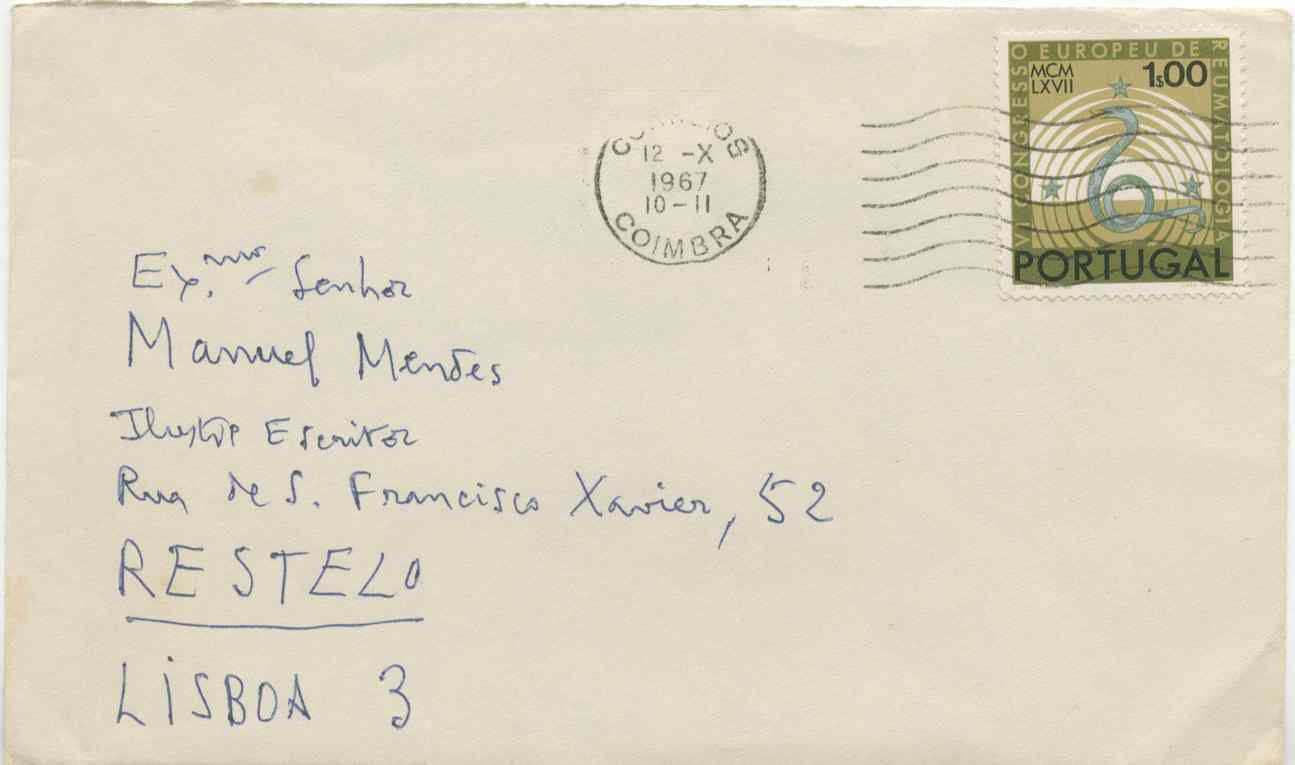 VI CONGRESSO EUROPEU DE REUMATOLOGIA
MCM
LXVII
1$00
PORTUGAL
CORREIOS
12 -X
1967
10-11
COIMBRA
Ex.mo Senhor
Manuel Mendes
Ilustre Escritor
Rua de S. Francisco Xavier, 52
RESTELO
LISBOA 3